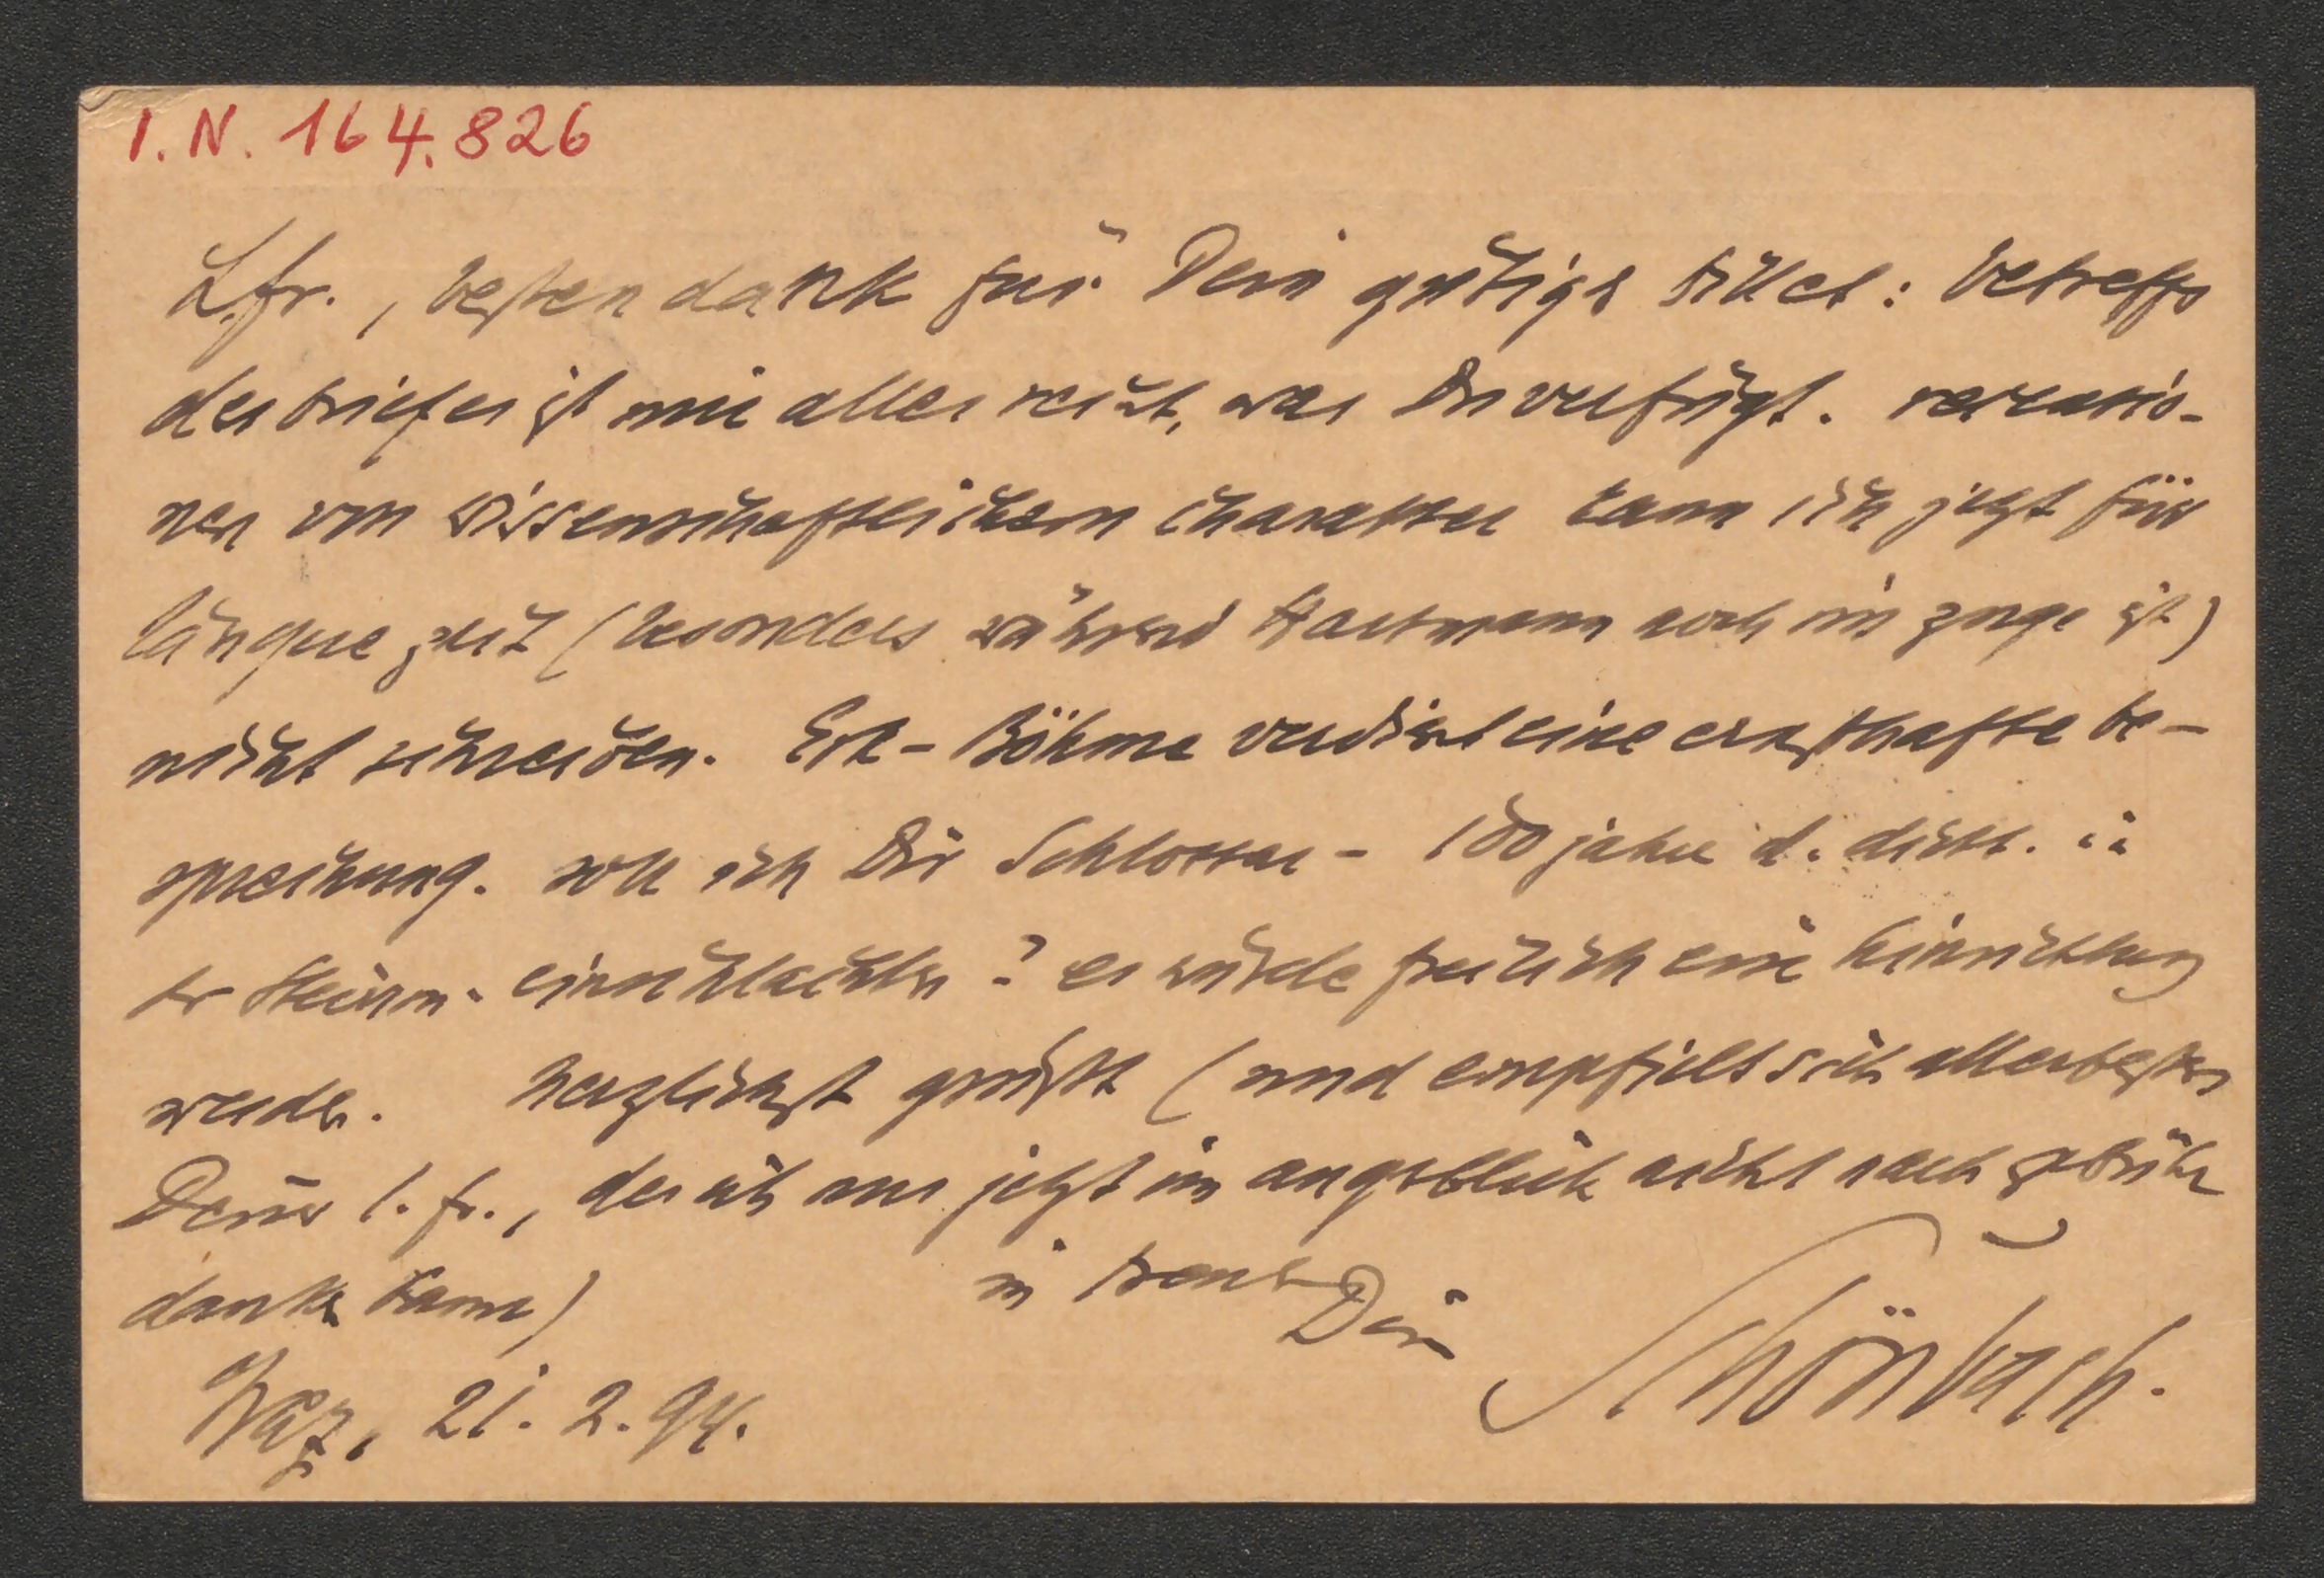 I.N. 164.826
L. fr., besten dank für Dein gütiges billet: betreffs
des briefes ist mir alles recht, was Du verfügst. recensio-
nen von wissenschaftlichem charakter kann ich jetzt für
längere zeit (besonders während Hartmann noch im zuge ist)
nicht schreiben. Erk-Böhme verdient eine ernsthafte be-
sprechung. soll ich Dir Schlossar - 100 jahre d. dicht. in
Steierm. einschlachten? es würde freilich eine hinrichtung
werden. herzlichst grüsst (und empfielt sich allerbestens
Deiner l. fr., der ich nur jetzt im augenblick nicht nach gebühr
danken kann) in treue Dein
Schönbach.
Graz, 21. 2. 94.